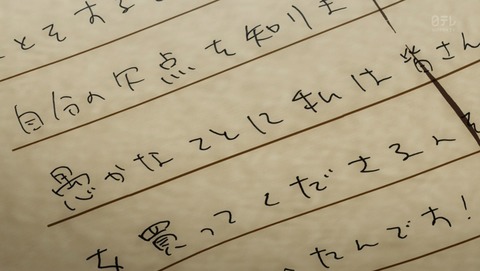 とすると
自分の欠点を知りま
愚かなことに私は皆さん
を買ってくださる人を
たんです!
日テレ